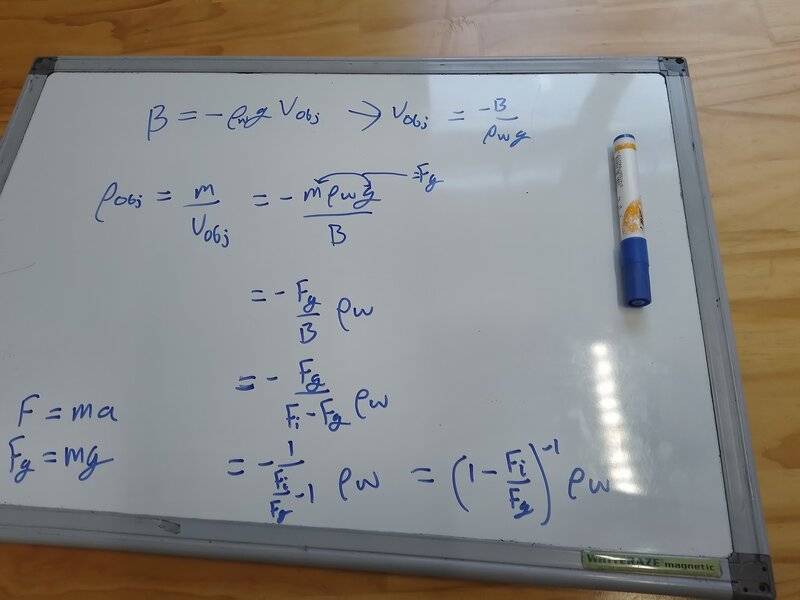 B = -ρwg Vobj → Vobj = -B/ρwg
ρobj = m/Vobj = - mρwg/B =Fg
= - Fg/B ρw
= - Fg/(Fi - Fg) ρw
F = ma
Fg = mg
= - 1/(Fi/Fg - 1) ρw = (1 - Fi/Fg)^-1 ρw
WHITERAZE magnetic